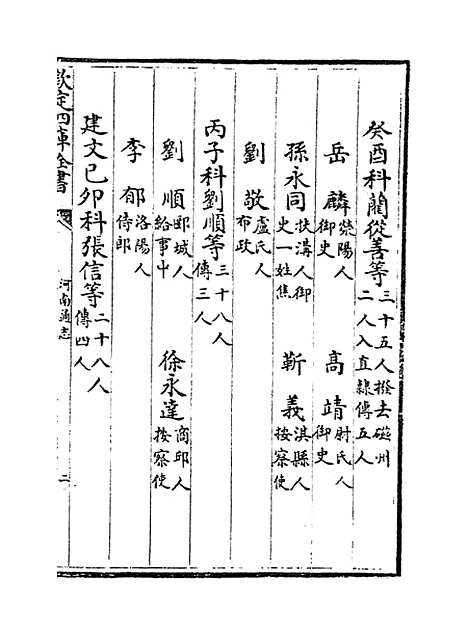 癸酉科藺從善等三十五人撥去磁州二人入直隸傳五人
岳麟滎陽人御史　高靖尉氏人御史
孫永同扶溝人御史一姓焦　靳義淇縣人按察使
劉敬盧氏人布政
丙子科劉順等三十八人傳三人
劉順郾城人給事中　徐永達商邱人按察使
李郁洛陽人侍郎
建文己卯科張信等二十八人傳四人
欽定四庫全書　河南通志　二